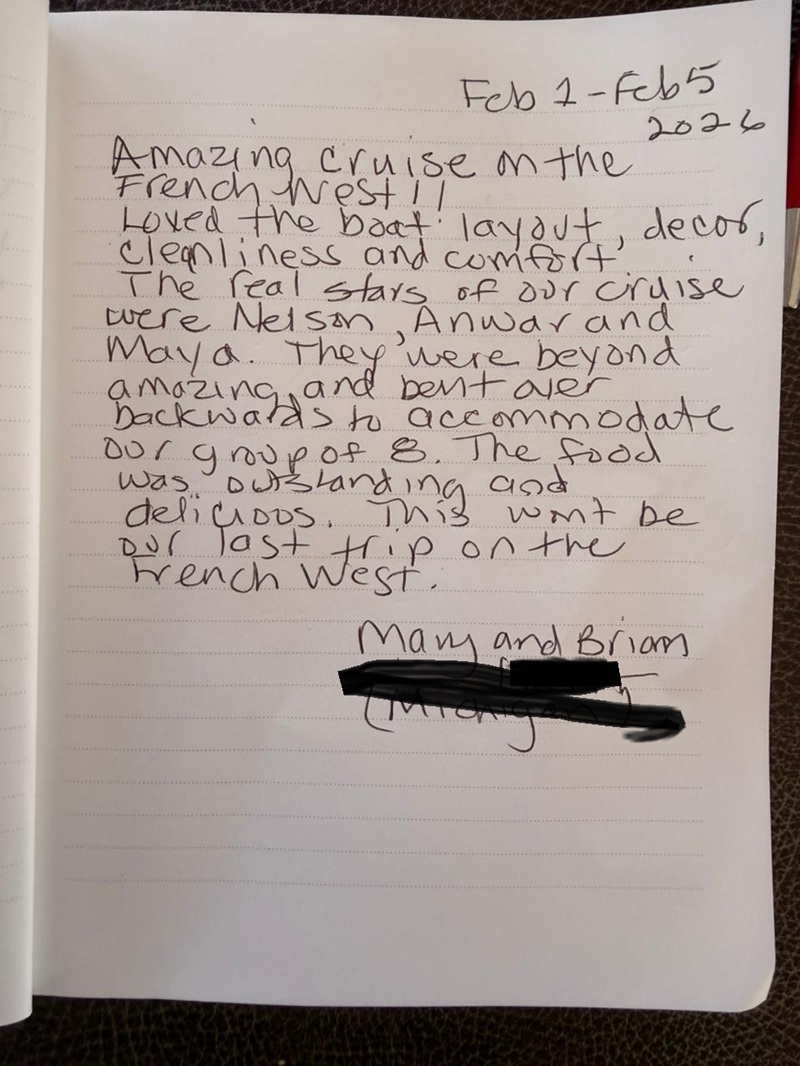 Feb 1 - Feb 5
2026
Amazing cruise on the
French West!!
Loved the boat layout, decor,
cleanliness and comfort
The real stars of our cruise
were Nelson, Anwar and
Maya. They were beyond
amazing and bent over
backwards to accommodate
our group of 8. The food
was outstanding and
delicious. This wont be
our last trip on the
French West.
Mary and Brian